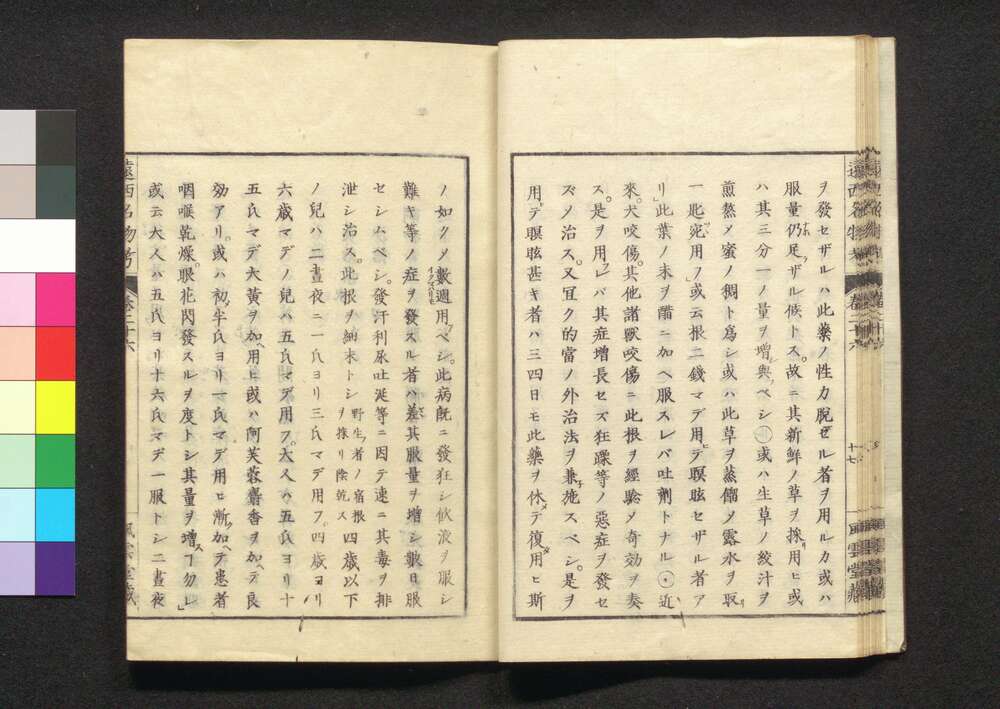 ヲ發セザルハ此藥ノ性力脫セル者ヲ用ルカ或ハ
服量仍足ラザル候トス。故ニ其新鮮ノ草ヲ採リ用ヒ或
ハ其三分一ノ量ヲ增シ與フベシ 或ハ生草ノ絞汁ヲ
煎熬メ蜜ノ稠ト爲シ或ハ此草ヲ蒸餾メ露水ヲ取リ
一匙宛用フ或云根二錢マデ用ヒテ瞑眩セザル者ア
リ」此葉ノ末ヲ醋ニ加ヘ服スレバ吐劑トナル 近
來。犬咬傷。其他諸獸咬傷ニ此根ヲ經驗メ奇効ヲ奏
ス。是ヲ用フレバ其症增長セズ狂躁等ノ惡症ヲ發セ
ズメ治ス。又冝ク的當ノ外治法ヲ兼子施スベシ。是ヲ
用テ瞑眩甚キ者ハ三四日モ此藥ヲ休メテ復タ用ヒ斯
ノ如クメ數週用フベシ。此病旣ニ發狂シ飮液ヲ服シ
難キ等ノ症ヲ發スル者ハ差其服量ヲ增シ數日服
セシムベシ。發汗利尿吐涎等ニ因テ速ニ其毒ヲ排
泄シ治ス。此根ヲ細末トシ 野生ノ者ノ宿根ヲ採リ陰乾ス 四歲以下
ノ兒ハ二晝夜ニ一氏ヨリ三氏マデ用フ。四歲ヨリ
六歲マデノ兒ハ五氏マデ用フ。大人ハ五氏ヨリ十
五氏マデ大黃ヲ加ヘ用ヒ或ハ阿芙蓉麝香ヲ加ヘテ良
効アリ。或ハ初メ半氏ヨリ一氏マデ用ヒ漸ク加ヘテ患者
咽喉乾燥。眼花閃發スルヲ度トシ其量ヲ增スヿ勿レ」
或云大人ハ五氏ヨリ十六氏マデ一服トシ二晝夜
遠西名物考 卷二十六 風雲堂藏
十七